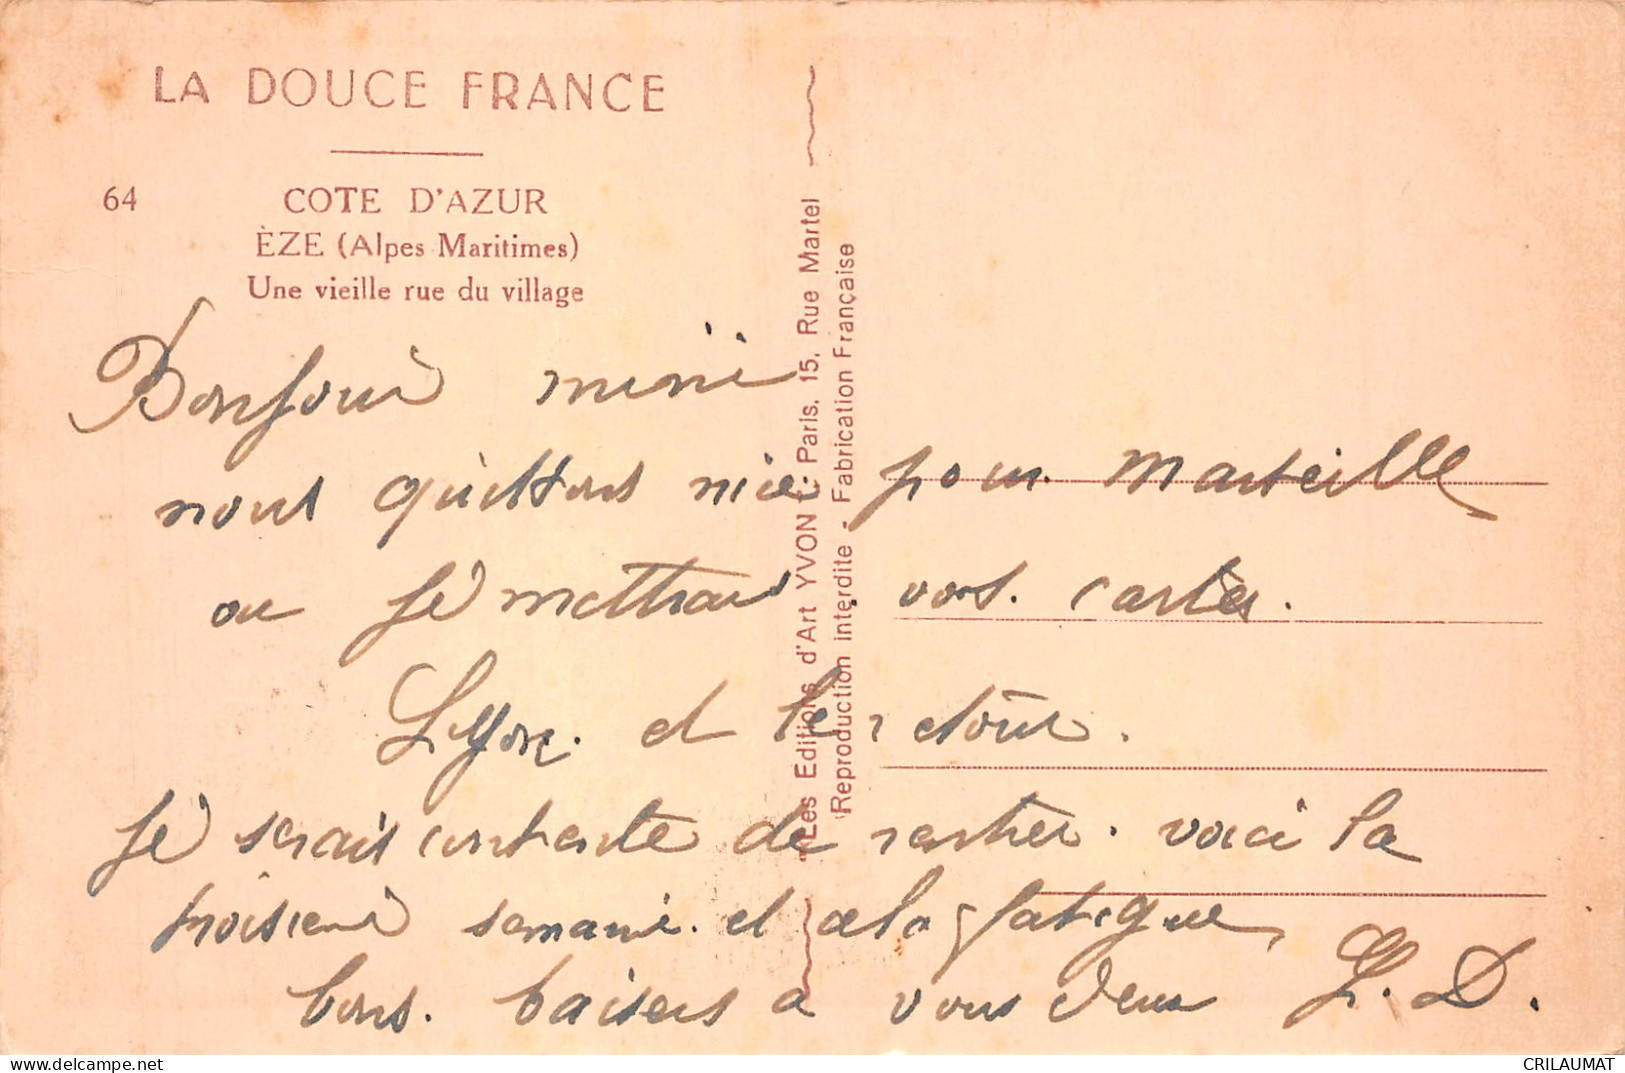 LA DOUCE FRANCE
64
COTE D'AZUR
ÈZE (Alpes Maritimes)
Une vieille rue du village
Bonjour mimi
nous quittons nice pour Marseille
ou je mettrai vos cartes.
Lyon. et le retour.
je serais contente de rentrer. voici la
troisieme semaine. et cela fatigue
bons. baisers a vous deux L. D.
Les Editions d'Art YVON - Paris, 15, Rue Martel
Reproduction interdite - Fabrication Française
delcampe.net
CRILAUMAT